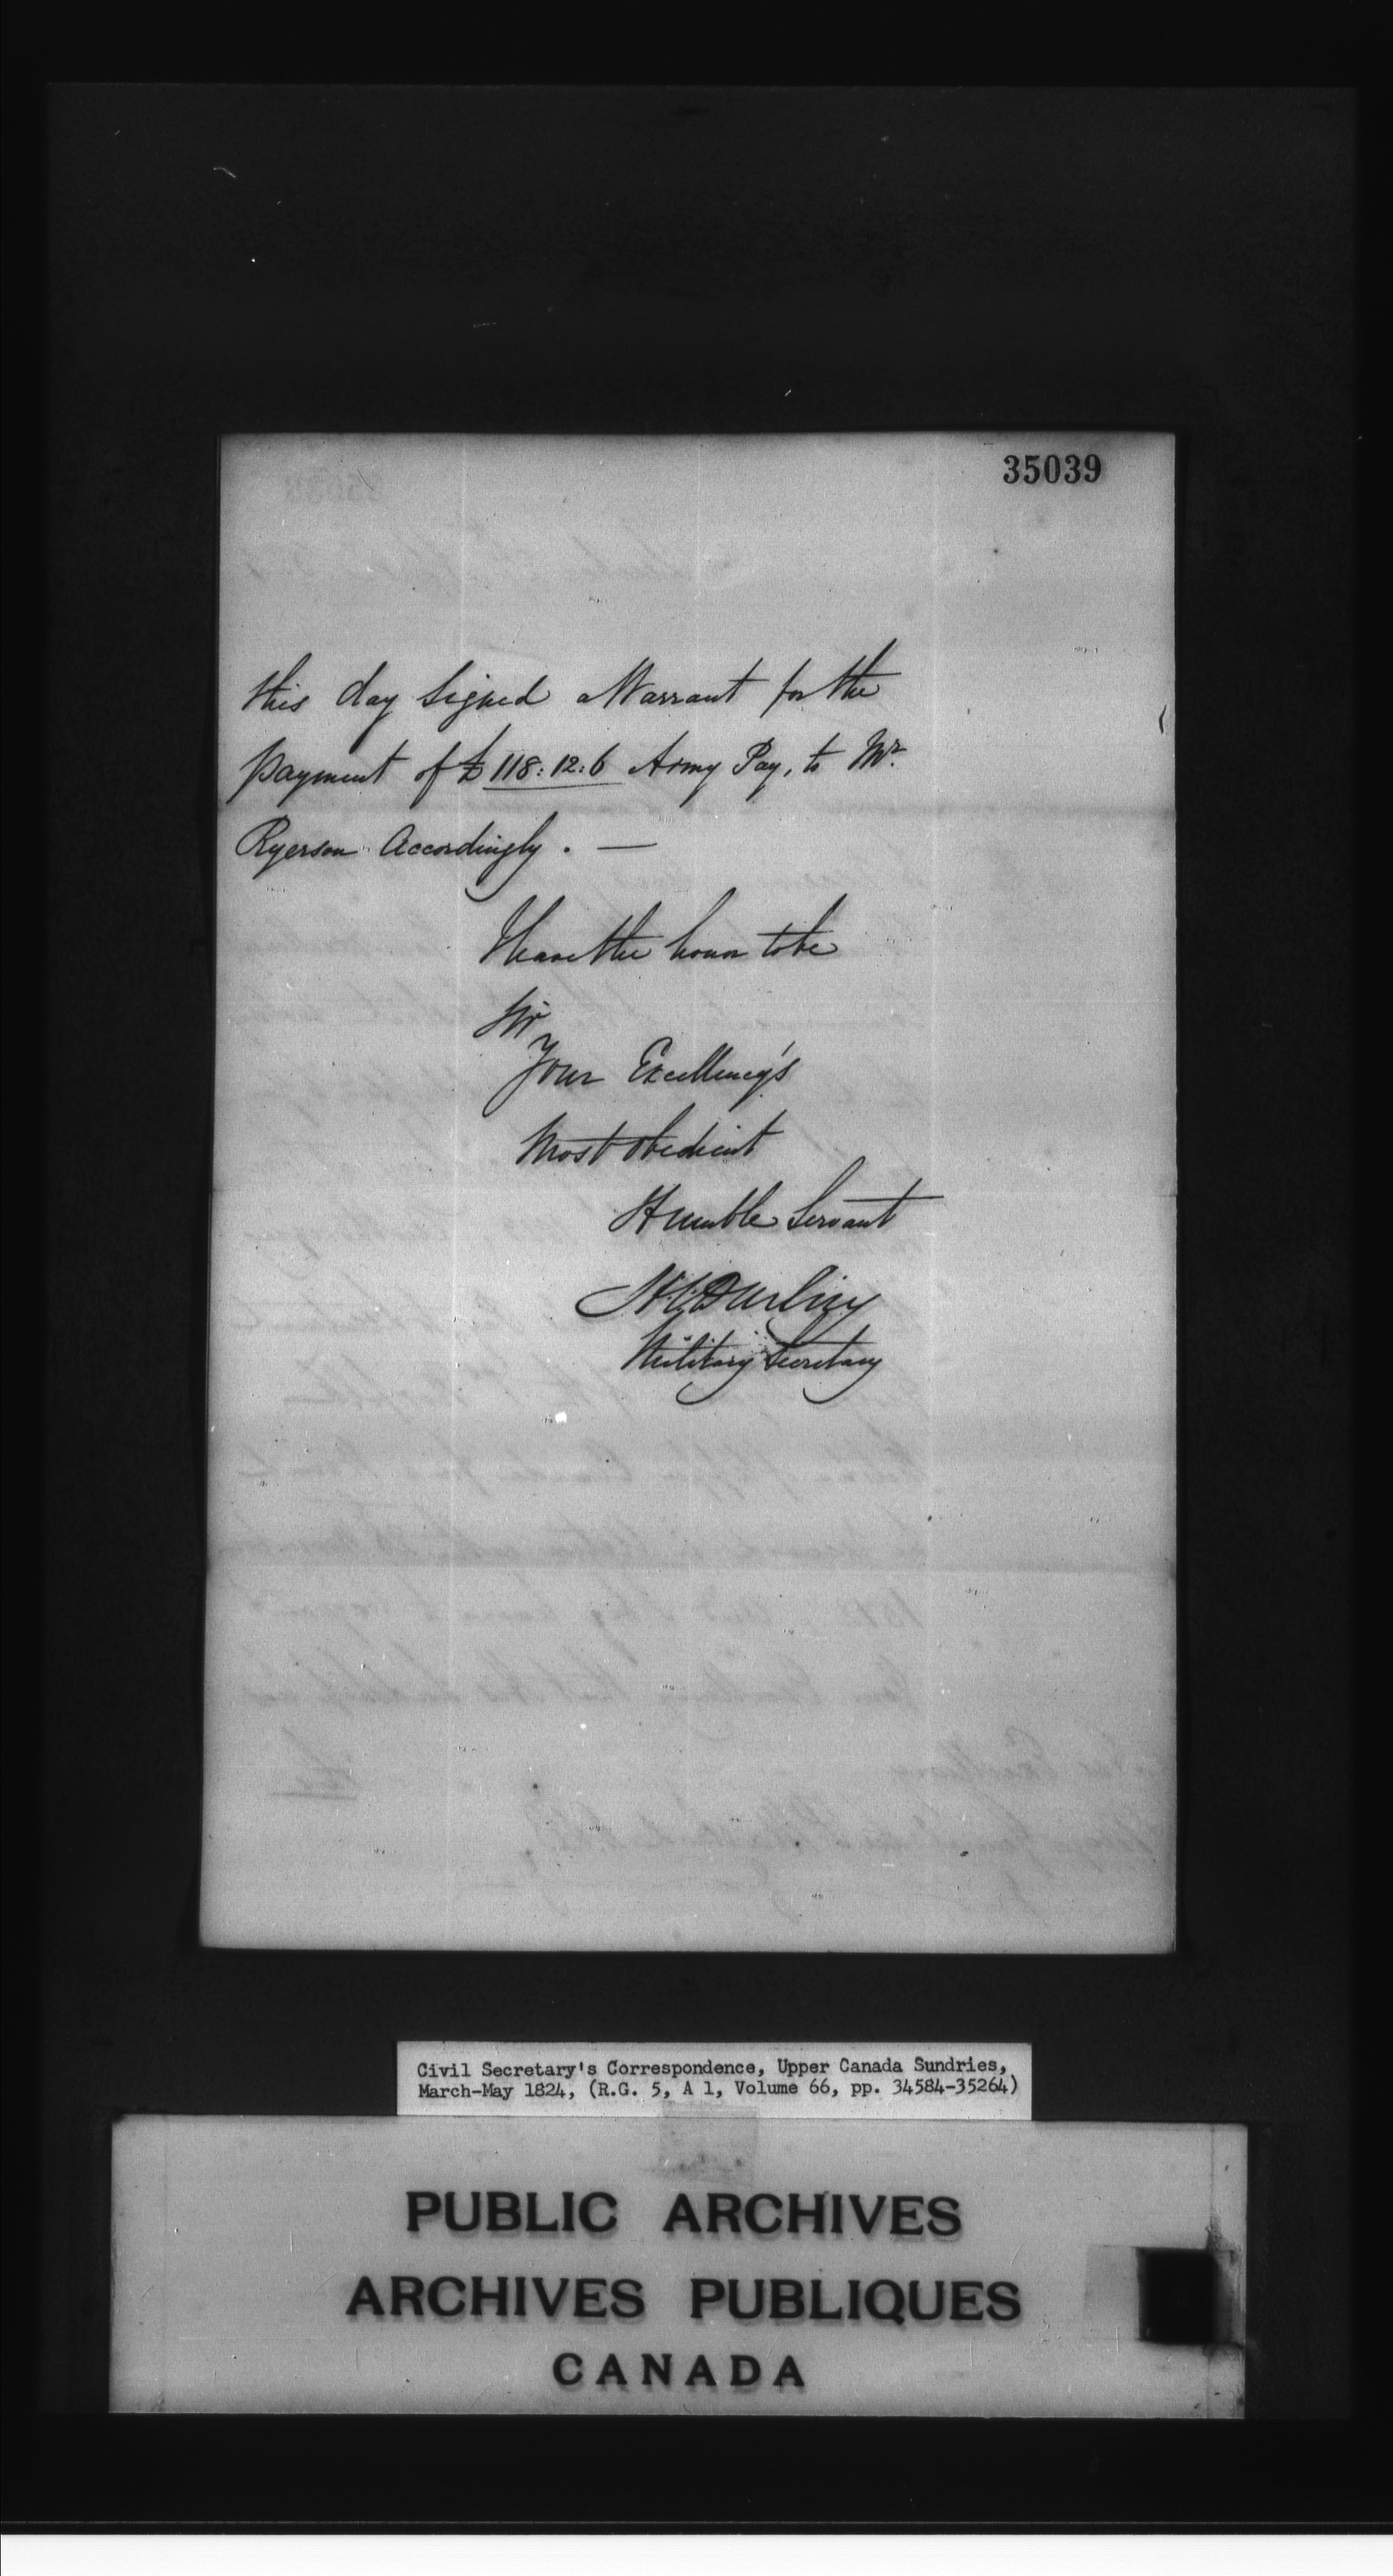 35039
this day signed a Warrant for the
payment of £118:12:6 Army Pay, to Mr.
Ryerson Accordingly. —
I have the honor to be
Sir
Your Excellency's
Most obedient
Humble Servant
H.C. Darling
Military Secretary
Civil Secretary's Correspondence, Upper Canada Sundries,
March-May 1824, (R.G. 5, A 1, Volume 66, pp. 34584-35264)
PUBLIC ARCHIVES
ARCHIVES PUBLIQUES
CANADA